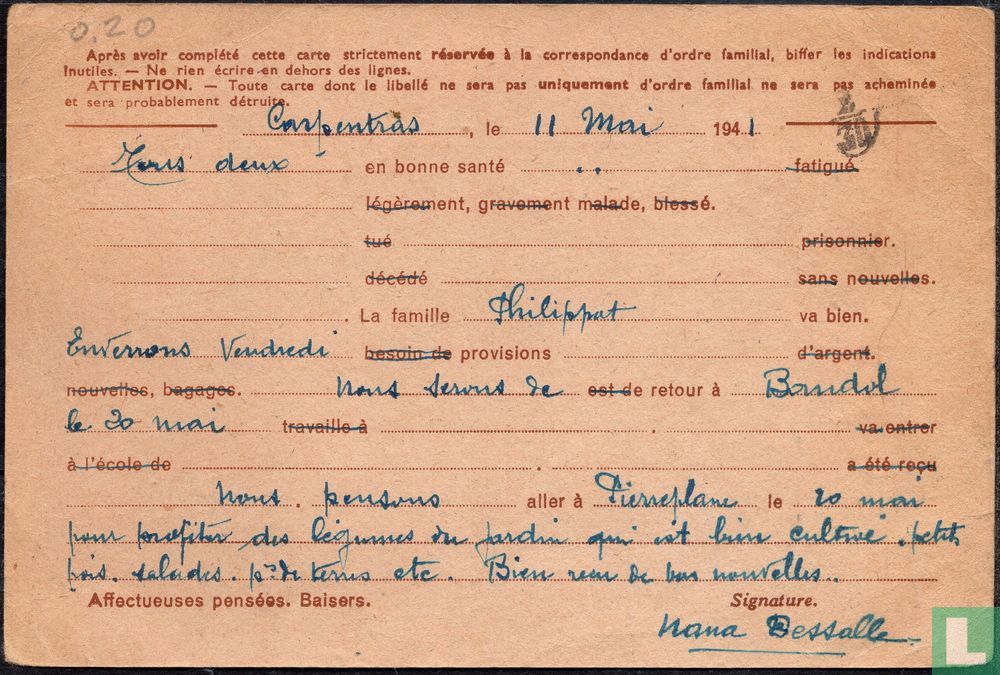 0.20
Après avoir complété cette carte strictement réservée à la correspondance d'ordre familial, biffer les indications
inutiles. — Ne rien écrire en dehors des lignes.
ATTENTION. — Toute carte dont le libellé ne sera pas uniquement d'ordre familial ne sera pas acheminée
et sera probablement détruite.
Carpentras, le 11 Mai 1941
Tous deux en bonne santé .. fatigué
légèrement, gravement malade, blessé.
tué prisonnier.
décédé sans nouvelles.
. La famille Philippat va bien.
Enverrons Vendredi besoin de provisions d'argent.
nouvelles, bagages. nous serons de est de retour à Bandol
le 20 mai travaille à . va entrer
à l'école de . a été reçu
nous . pensons aller à Pierreplane le 20 mai
pour profiter des légumes du jardin qui est bien cultivé. petits
pois. salades. p. de terres etc. Bien reçu de vos nouvelles..
Affectueuses pensées. Baisers. Signature.
Nana Dessalle
L